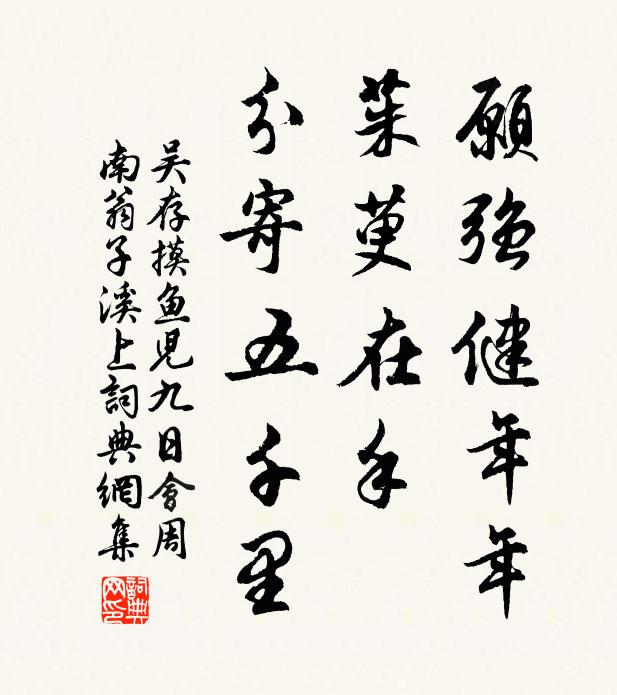 願強健年年
茱萸在手
分寄五千里
吴存摸鱼児九日會周
南翁子溪上詞典網集
詞典
网印